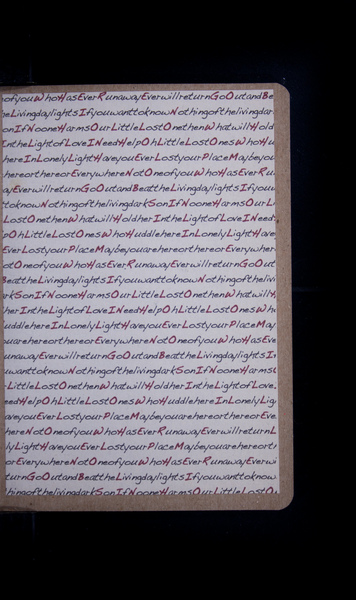 ofyouWhoHasEverRunawayEverwillreturnGoOutandBe
heLivingdaylightsIfyouwanttoknowNothingofthelivingdar
SonIfNooneHarmsOurLittleLostOnethenWhatwillHold
IntheLightofLoveINeedHelpOhLittleLostOnesWhoHu
hereInLonelyLightHaveyouEverLostyourPlaceMaybeyou
hereorthereorEverywhereNotOneofyouWhoHasEverRu
ayEverwillreturnGoOutandBeattheLivingdaylightsIfyou
toknowNothingofthelivingdarkSonIfNooneHarmsOurLi
LostOnethenWhatwillHoldherIntheLightofLoveINeed
pOhLittleLostOnesWhoHuddlehereInLonelyLightHave
EverLostyourPlaceMaybeyouarehereorthereorEverywher
otOneofyouWhoHasEverRunawayEverwillreturnGoOut
BeattheLivingdaylightsIfyouwanttoknowNothingoftheliv
rkSonIfNooneHarmsOurLittleLostOnethenWhatwillH
herIntheLightofLoveINeedHelpOhLittleLostOnesWh
uddlehereInLonelyLightHaveyouEverLostyourPlaceMay
uarehereorthereorEverywhereNotOneofyouWhoHasEve
unawayEverwillreturnGoOutandBeattheLivingdaylightsI
uwanttoknowNothingofthelivingdarkSonIfNooneHarmsO
LittleLostOnethenWhatwillHoldherIntheLightofLove
eedHelpOhLittleLostOnesWhoHuddlehereInLonelyLig
aveyouEverLostyourPlaceMaybeyouarehereorthereorEve
hereNotOneofyouWhoHasEverRunawayEverwillreturn
lyLightHaveyouEverLostyourPlaceMaybeyouarehereort
orEverywhereNotOneofyouWhoHasEverRunawayEverwi
turnGoOutandBeattheLivingdaylightsIfyouwanttoknow
hingofthelivingdarkSonIfNooneHarmsOurLittleLostO